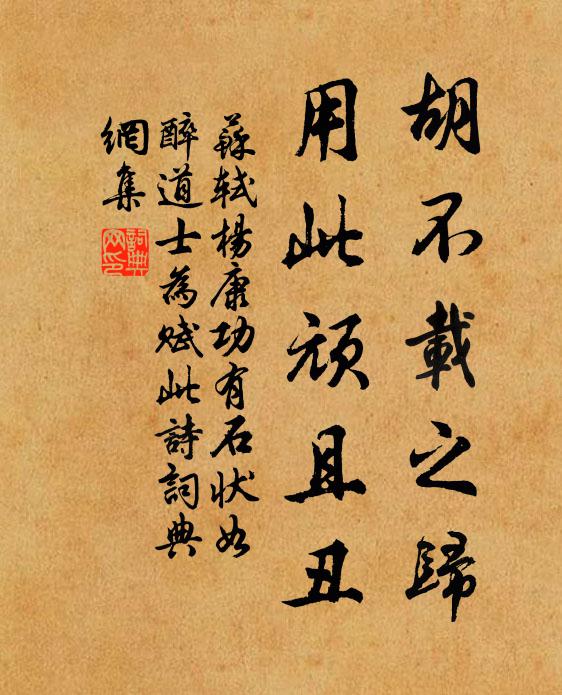 胡不載之歸
用此頑且丑
蘇軾楊康功有石狀如
醉道士為賦此詩詞典
網集
詞典網印